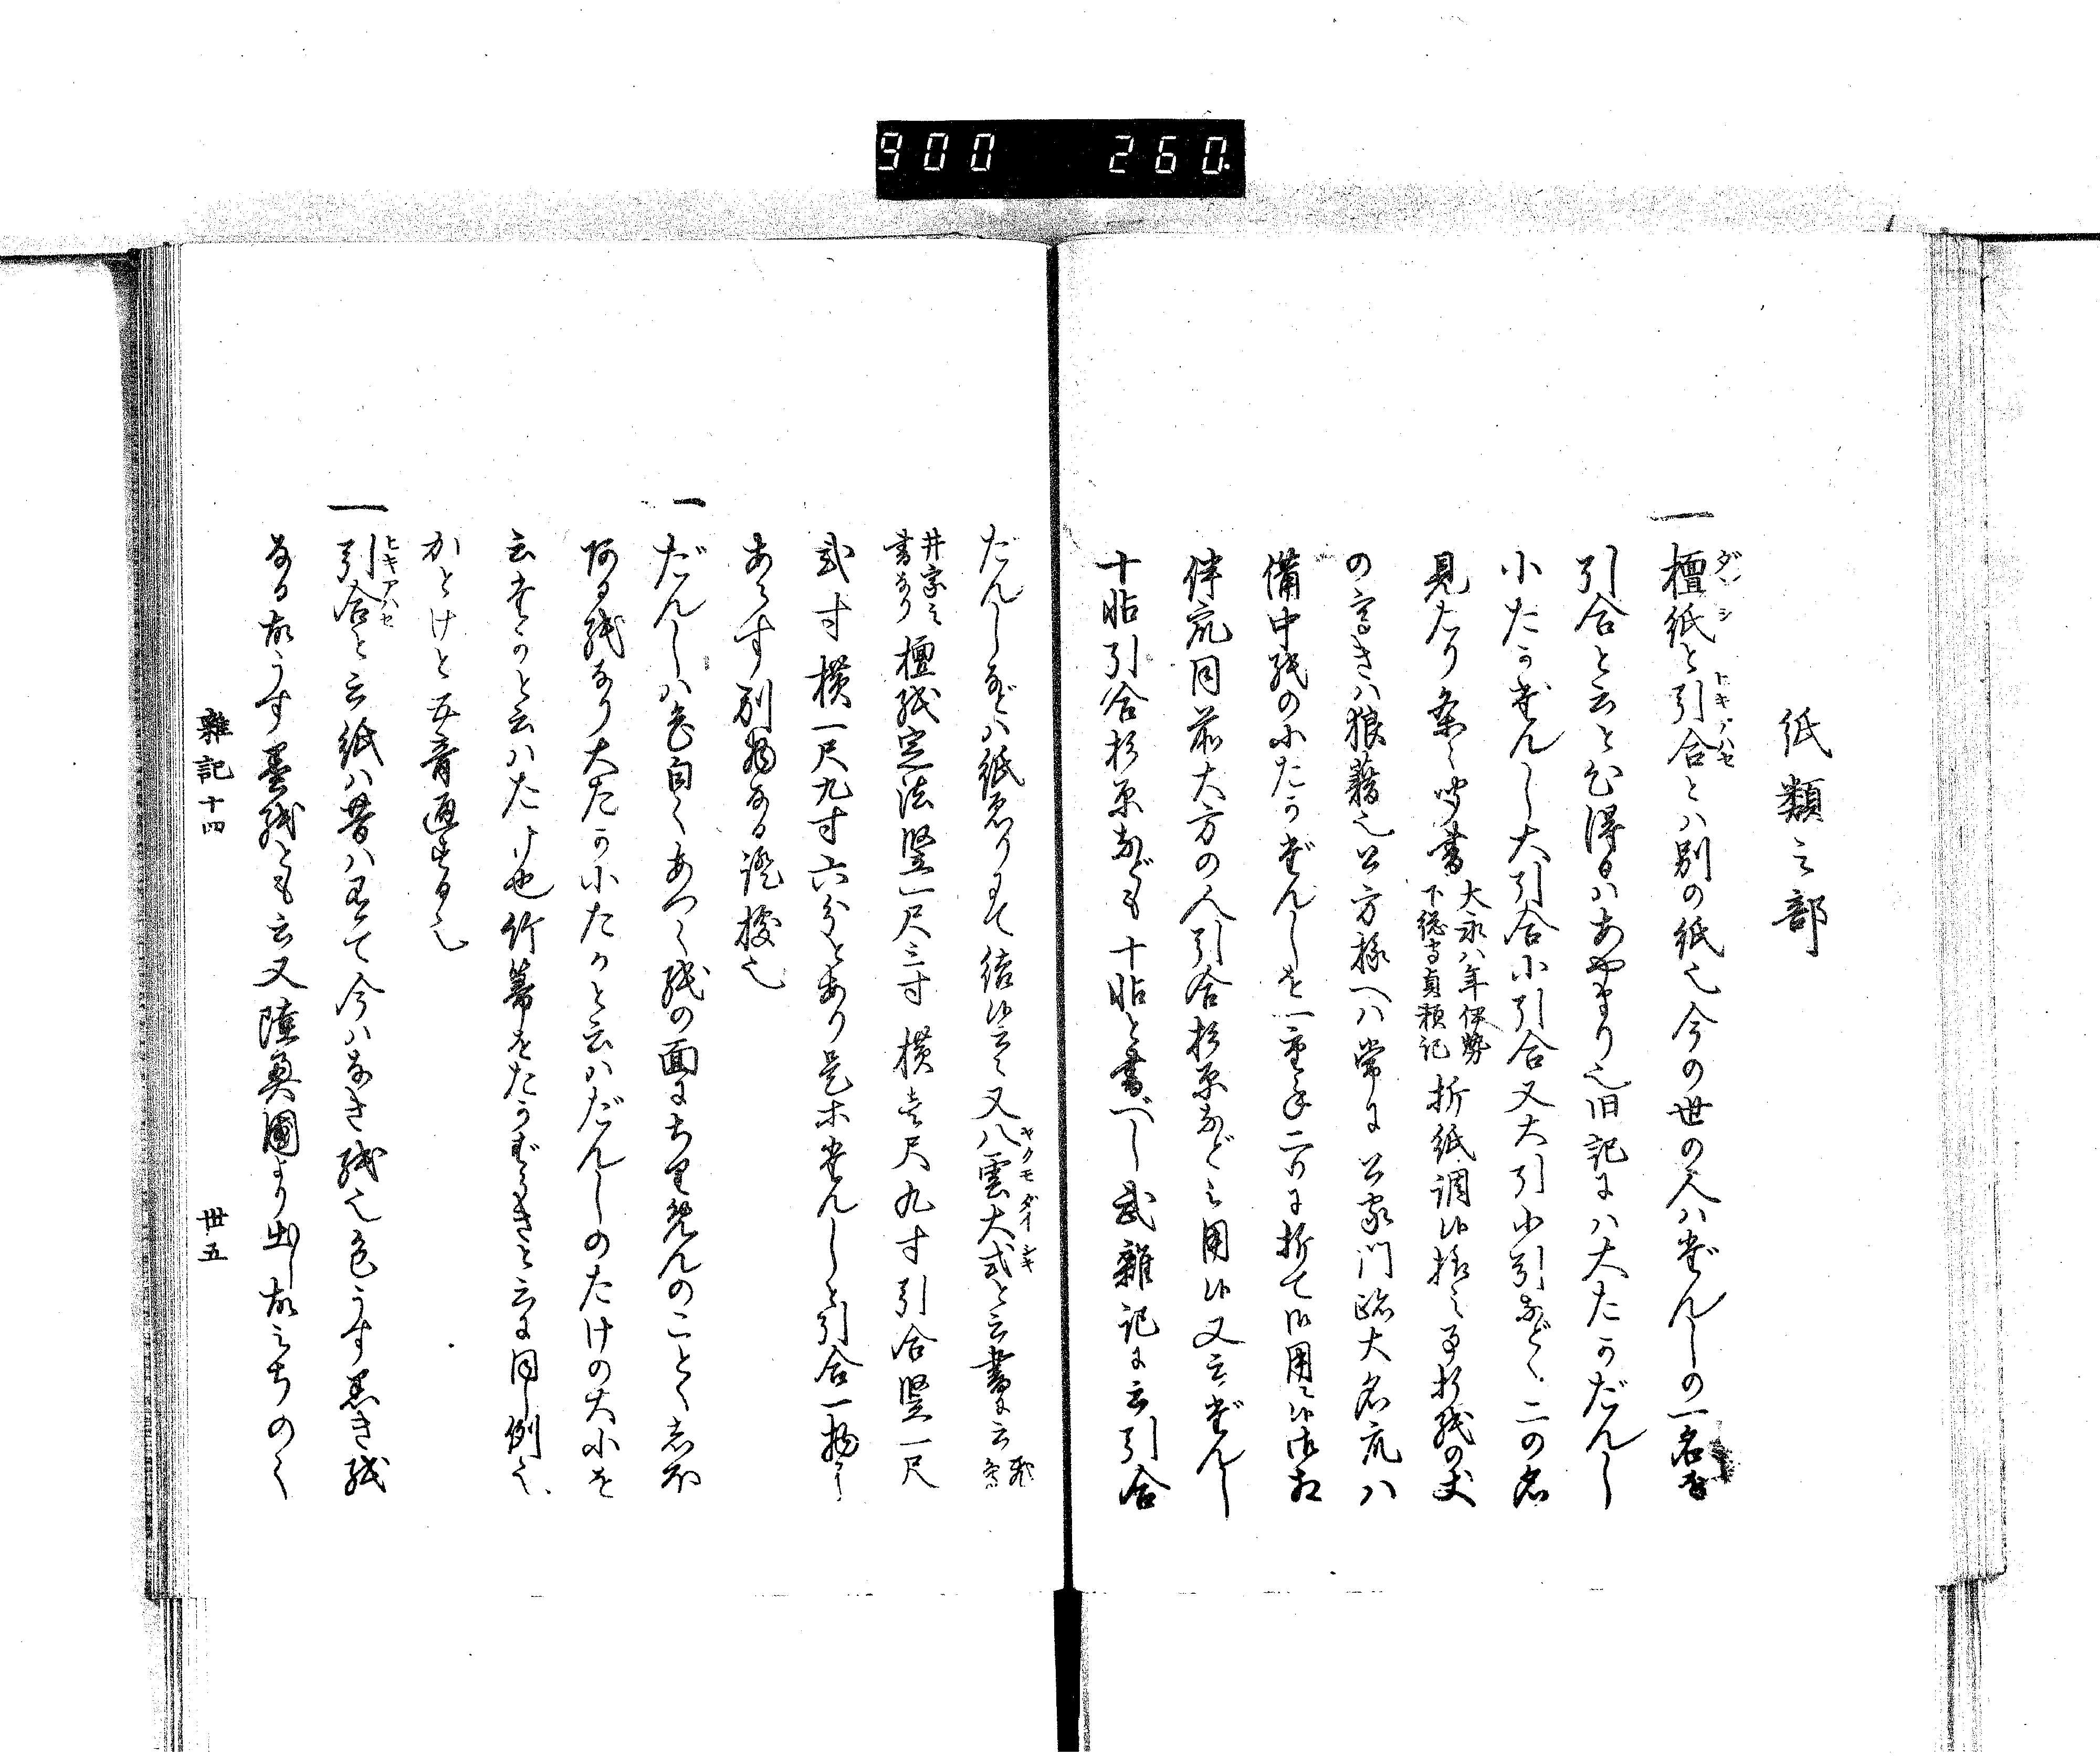 900 260
紙類之部
一檀紙と引合とハ別の紙也今の世の人ハだんしの一名を
ダンシ ヒキアハセ
引合と云と心得るハあやまり也旧記にハ大たかだんし
小たかだんし大引合小引合又大引小引などゝ二の名
見たり条々聞書 大永八年伊勢 下総守貞頼記 折紙調候様之事折紙の文
の高きハ狼藉也公方様へハ常に公家門跡大名衆ハ
備中紙の小たかだんしを一重を二ツに折て御用候御相
伴衆同前大方の人引合杉原などを用候又云だんし
十帖引合杉原なども十帖と書べし武雑記に云引合
だんしなどハ紙よりにて結候云々又八雲大式と云書に云
ヤクモダイシキ
書なり 檀紙定法竪一尺三寸横壱尺九寸引合竪一尺
弐寸横一尺九寸六分とあり是等だんしと引合一物に
あらす別物なる證拠也
一だんしハ色白くあつく紙の面にちりめんのことくしほ
ある紙なり大たか小たかと云ハだんしのたけの大小を
云たかと云ハたけ也竹葦をたかむしろと云に同し例也
かとけと五音通する也
一引合と云紙ハ昔ハありて今ハなき紙也色うす黒き紙
ヒキアハセ
なる故うす墨紙とも云又陸奥国より出し故みちのく
雑記十四 卅五